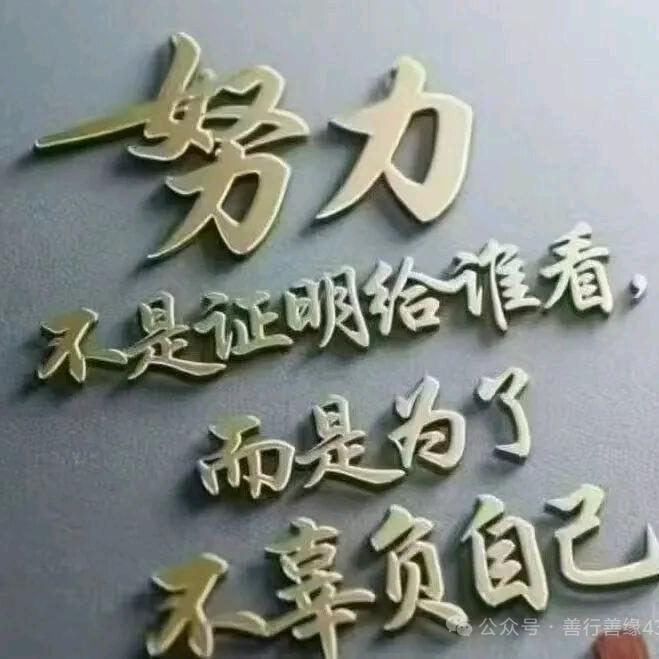 努力
不是证明给谁看,
而是为了
不辜负自己
公众号·善行善缘43